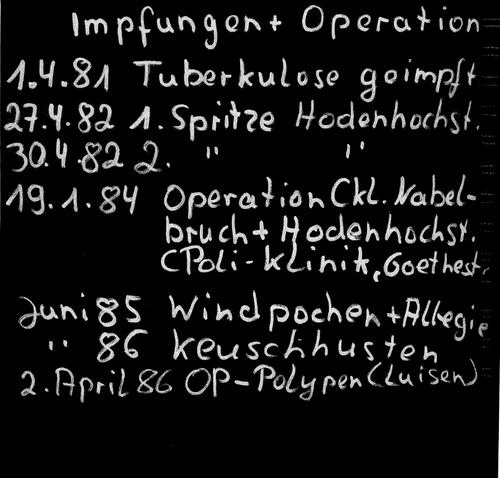 Impfungen + Operation
1.4.81 Tuberkulose geimpft
27.4.82 1. Spritze Hodenhochst.
30.4.82 2. " "
19.1.84 Operation Ckl. Nabel-
bruch + Hodenhochst.
CPoli-klinik, Goethest.
Juni 85 Windpochen + Allegie
" 86 keuschhusten
2. April 86 OP-Polypen (Luisen)